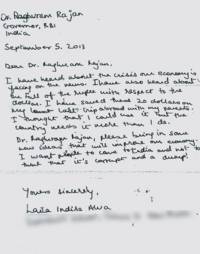 Dr. Raghuram Rajan
Governor, RBI
India
September 5, 2013
Dear Dr. Raghuram Rajan,
I have heard about the crisis our economy is
facing on the news. I have also heard about
the fall of the rupee with respect to the
dollar. I have saved these 20 dollars on
my last trip abroad with my parents.
I thought that I could use it but the
country needs it more than I do.
Dr. Raghuram Rajan, please bring in some
new ideas that will improve our economy.
I want people to come to India and not to
think that it's corrupt and a dump!
Yours Sincerely,
Laila Indira Alva